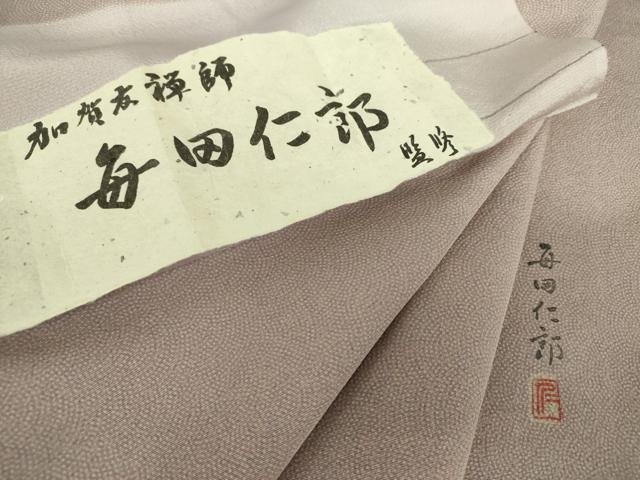 加賀友禅師
毎田仁郎
毎田仁郎